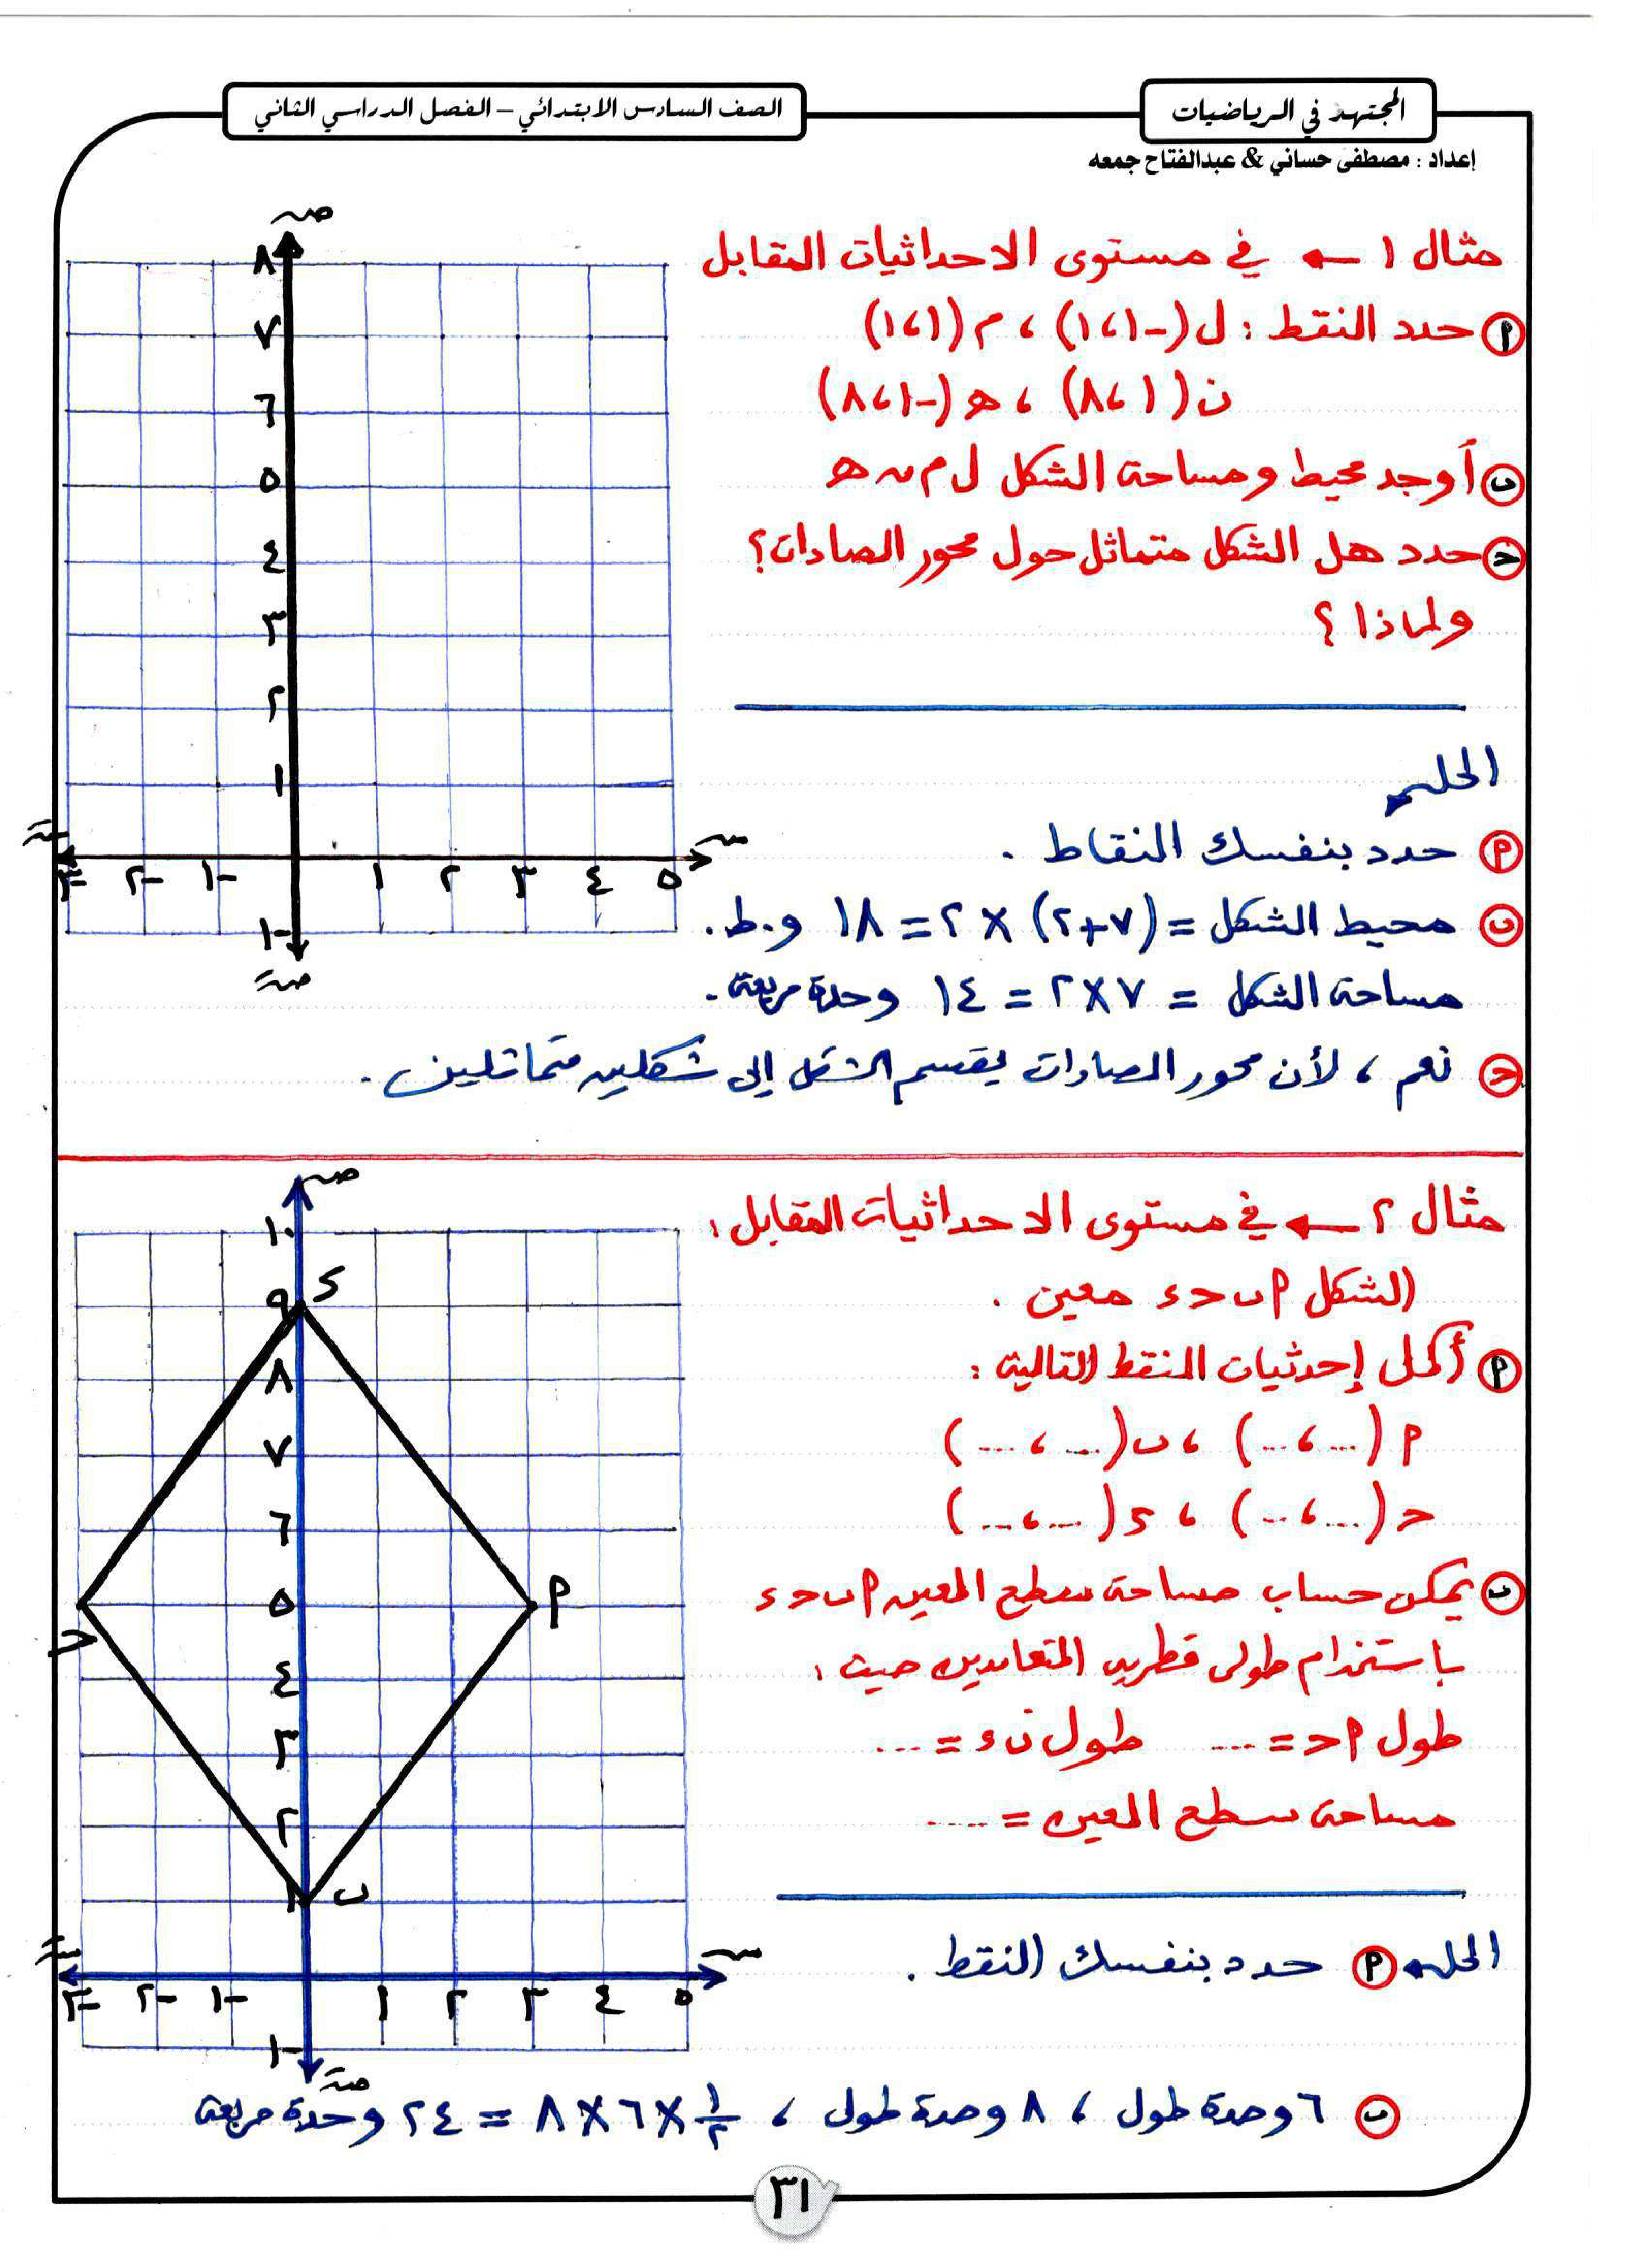 المجتهد في الرياضيات
الصف السادس الابتدائي – الفصل الدراسي الثاني
إعداد : مصطفى حساني & عبدالفتاح جمعه
مثال ١ ← في مستوى الاحداثيات المقابل
أ حدد النقط : ل (-١ ، ١) ، م (١ ، ١)
ن (١ ، ٨) ، هـ (-١ ، ٨)
ب أوجد محيط ومساحة الشكل ل م ن هـ
حـ حدد هل الشكل متماثل حول محور الصادات؟
ولماذا ؟
الحل
أ حدد بنفسك النقاط .
ب محيط الشكل = (٧+٢) × ٢ = ١٨ و.ط.
مساحة الشكل = ٧×٢ = ١٤ وحدة مربعة.
حـ نعم ، لأن محور الصادات يقسم الشكل إلى شكلين متماثلين.
ص
٨
٧
٦
٥
٤
٣
٢
١
سَ -٣ -٢ -١ ١ ٢ ٣ ٤ ٥ س
-١
صَ
مثال ٢ ← في مستوى الاحداثيات المقابل :
الشكل أ ب حـ ء معين .
أ أكمل إحدثيات النقط التالية :
أ (... ، ...) ، ب (... ، ...)
حـ (... ، ...) ، ء (... ، ...)
ب يمكن حساب مساحة سطح المعين أ ب حـ ء
باستخدام طولى قطريه المتعامدين حيث :
طول أ حـ = ... طول ب ء = ...
مساحة سطح المعين = ....
الحل أ حدد بنفسك النقط .
ب ٦ وحدة طول ، ٨ وحدة طول ، ١/٢ ×٦×٨ = ٢٤ وحدة مربعة
ص
١٠
٩ ء
٨
٧
٦
حـ ٥ أ
٤
٣
٢
١ ب
سَ -٣ -٢ -١ ١ ٢ ٣ ٤ ٥ س
-١
صَ
٣١